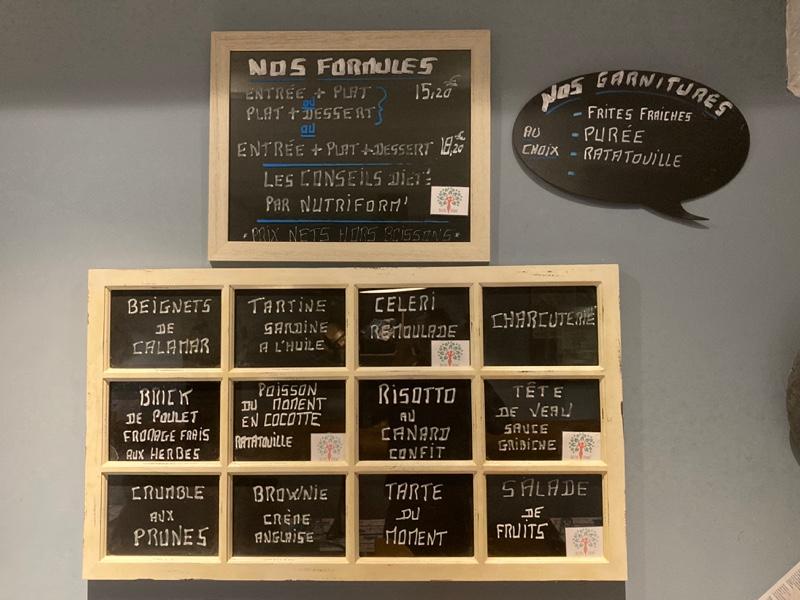 NOS FORMULES
ENTRÉE + PLAT 15,20€
ou
PLAT + DESSERT
ou
ENTRÉE + PLAT + DESSERT 18,20€
LES CONSEILS DIÉT'
PAR NUTRIFORM'
* PRIX NETS HORS BOISSONS *
NOS GARNITURES
AU CHOIX
- FRITES FRAICHES
- PURÉE
- RATATOUILLE
-
BEIGNETS
DE
CALAMAR
TARTINE
SARDINE
A L'HUILE
CELERI
REMOULADE
CHARCUTERIE
BRICK
DE POULET
FROMAGE FRAIS
AUX HERBES
POISSON
DU MOMENT
EN COCOTTE
RATATOUILLE
RISOTTO
AU
CANARD
CONFIT
TÊTE
DE VEAU
SAUCE
GRIBICHE
CRUMBLE
AUX
PRUNES
BROWNIE
CRÈME
ANGLAISE
TARTE
DU
MOMENT
SALADE
DE
FRUITS